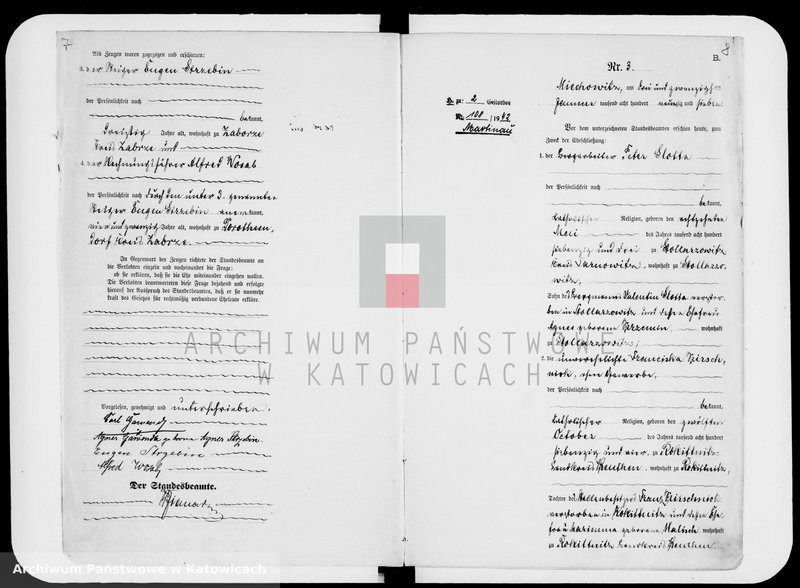 7
Als Zeugen waren zugezogen und erschienen:
3. der Steiger Eugen Strzebin
der Persönlichkeit nach
bekannt,
dreißig Jahre alt, wohnhaft zu Zaborze
Kreis Zaborze und
4. der Rechnungsführer Alfred
der Persönlichkeit nach durch den unter 3. genannten
Steiger Eugen Strzebin anerkannt,
vierundzwanzig Jahre alt, wohnhaft zu Dorotheen,
dorf Kreis Zaborze.
In Gegenwart der Zeugen richtete der Standesbeamte an
die Verlobten einzeln und nacheinander die Frage:
ob sie erklären, daß sie die Ehe miteinander eingehen wollen.
Die Verlobten beantworteten diese Frage bejahend und erfolgte
hierauf der Ausspruch des Standesbeamten, daß er sie nunmehr
kraft des Gesetzes für rechtmäßig verbundene Eheleute erkläre.
Vorgelesen, genehmigt und unterschrieben.
Carl
Agnes geborene Agnes
Eugen
Alfred
Der Standesbeamte.
8
B.
Nr. 3.
Miechowitz, am drei und zwanzigsten
Januar tausend acht hundert neunzig und sieben.
Vor dem unterzeichneten Standesbeamten erschien heute, zum
Zweck der Eheschließung:
1. der Bergarbeiter Peter Slotta
der Persönlichkeit nach
bekannt,
katholischer Religion, geboren den achtzehnten
Mai des Jahres tausend acht hundert
siebenzig und drei zu Stollarzowitz
Kreis Tarnowitz, wohnhaft zu Stollarzo-
witz,
Sohn des Bergmanns Valentin Slotta verstor-
ben in Stollarzowitz und dessen Ehefrau
Agnes geborene wohnhaft
zu Stollarzowitz;
2. die unverehelichte Franciska Kirsch-
niok, ohne Gewerbe,
der Persönlichkeit nach
bekannt,
katholischer Religion, geboren den zwölften
October des Jahres tausend acht hundert
siebenzig und vier, zu Rokittnitz
Landkreis Beuthen, wohnhaft zu Rokittnitz,
Tochter des Stellenbesitzers Franz Kirschniok
verstorben in Rokittnitz und dessen Ehe
frau geborene Malisch wohnhaft
zu Rokittnitz Landkreis Beuthen.
B. zu: 2 Verlobten
No. 100 /1942
Martinau
ARCHIWUM PAŃSTWOWE
W KATOWICACH
Archiwum Państwowe w Katowicach